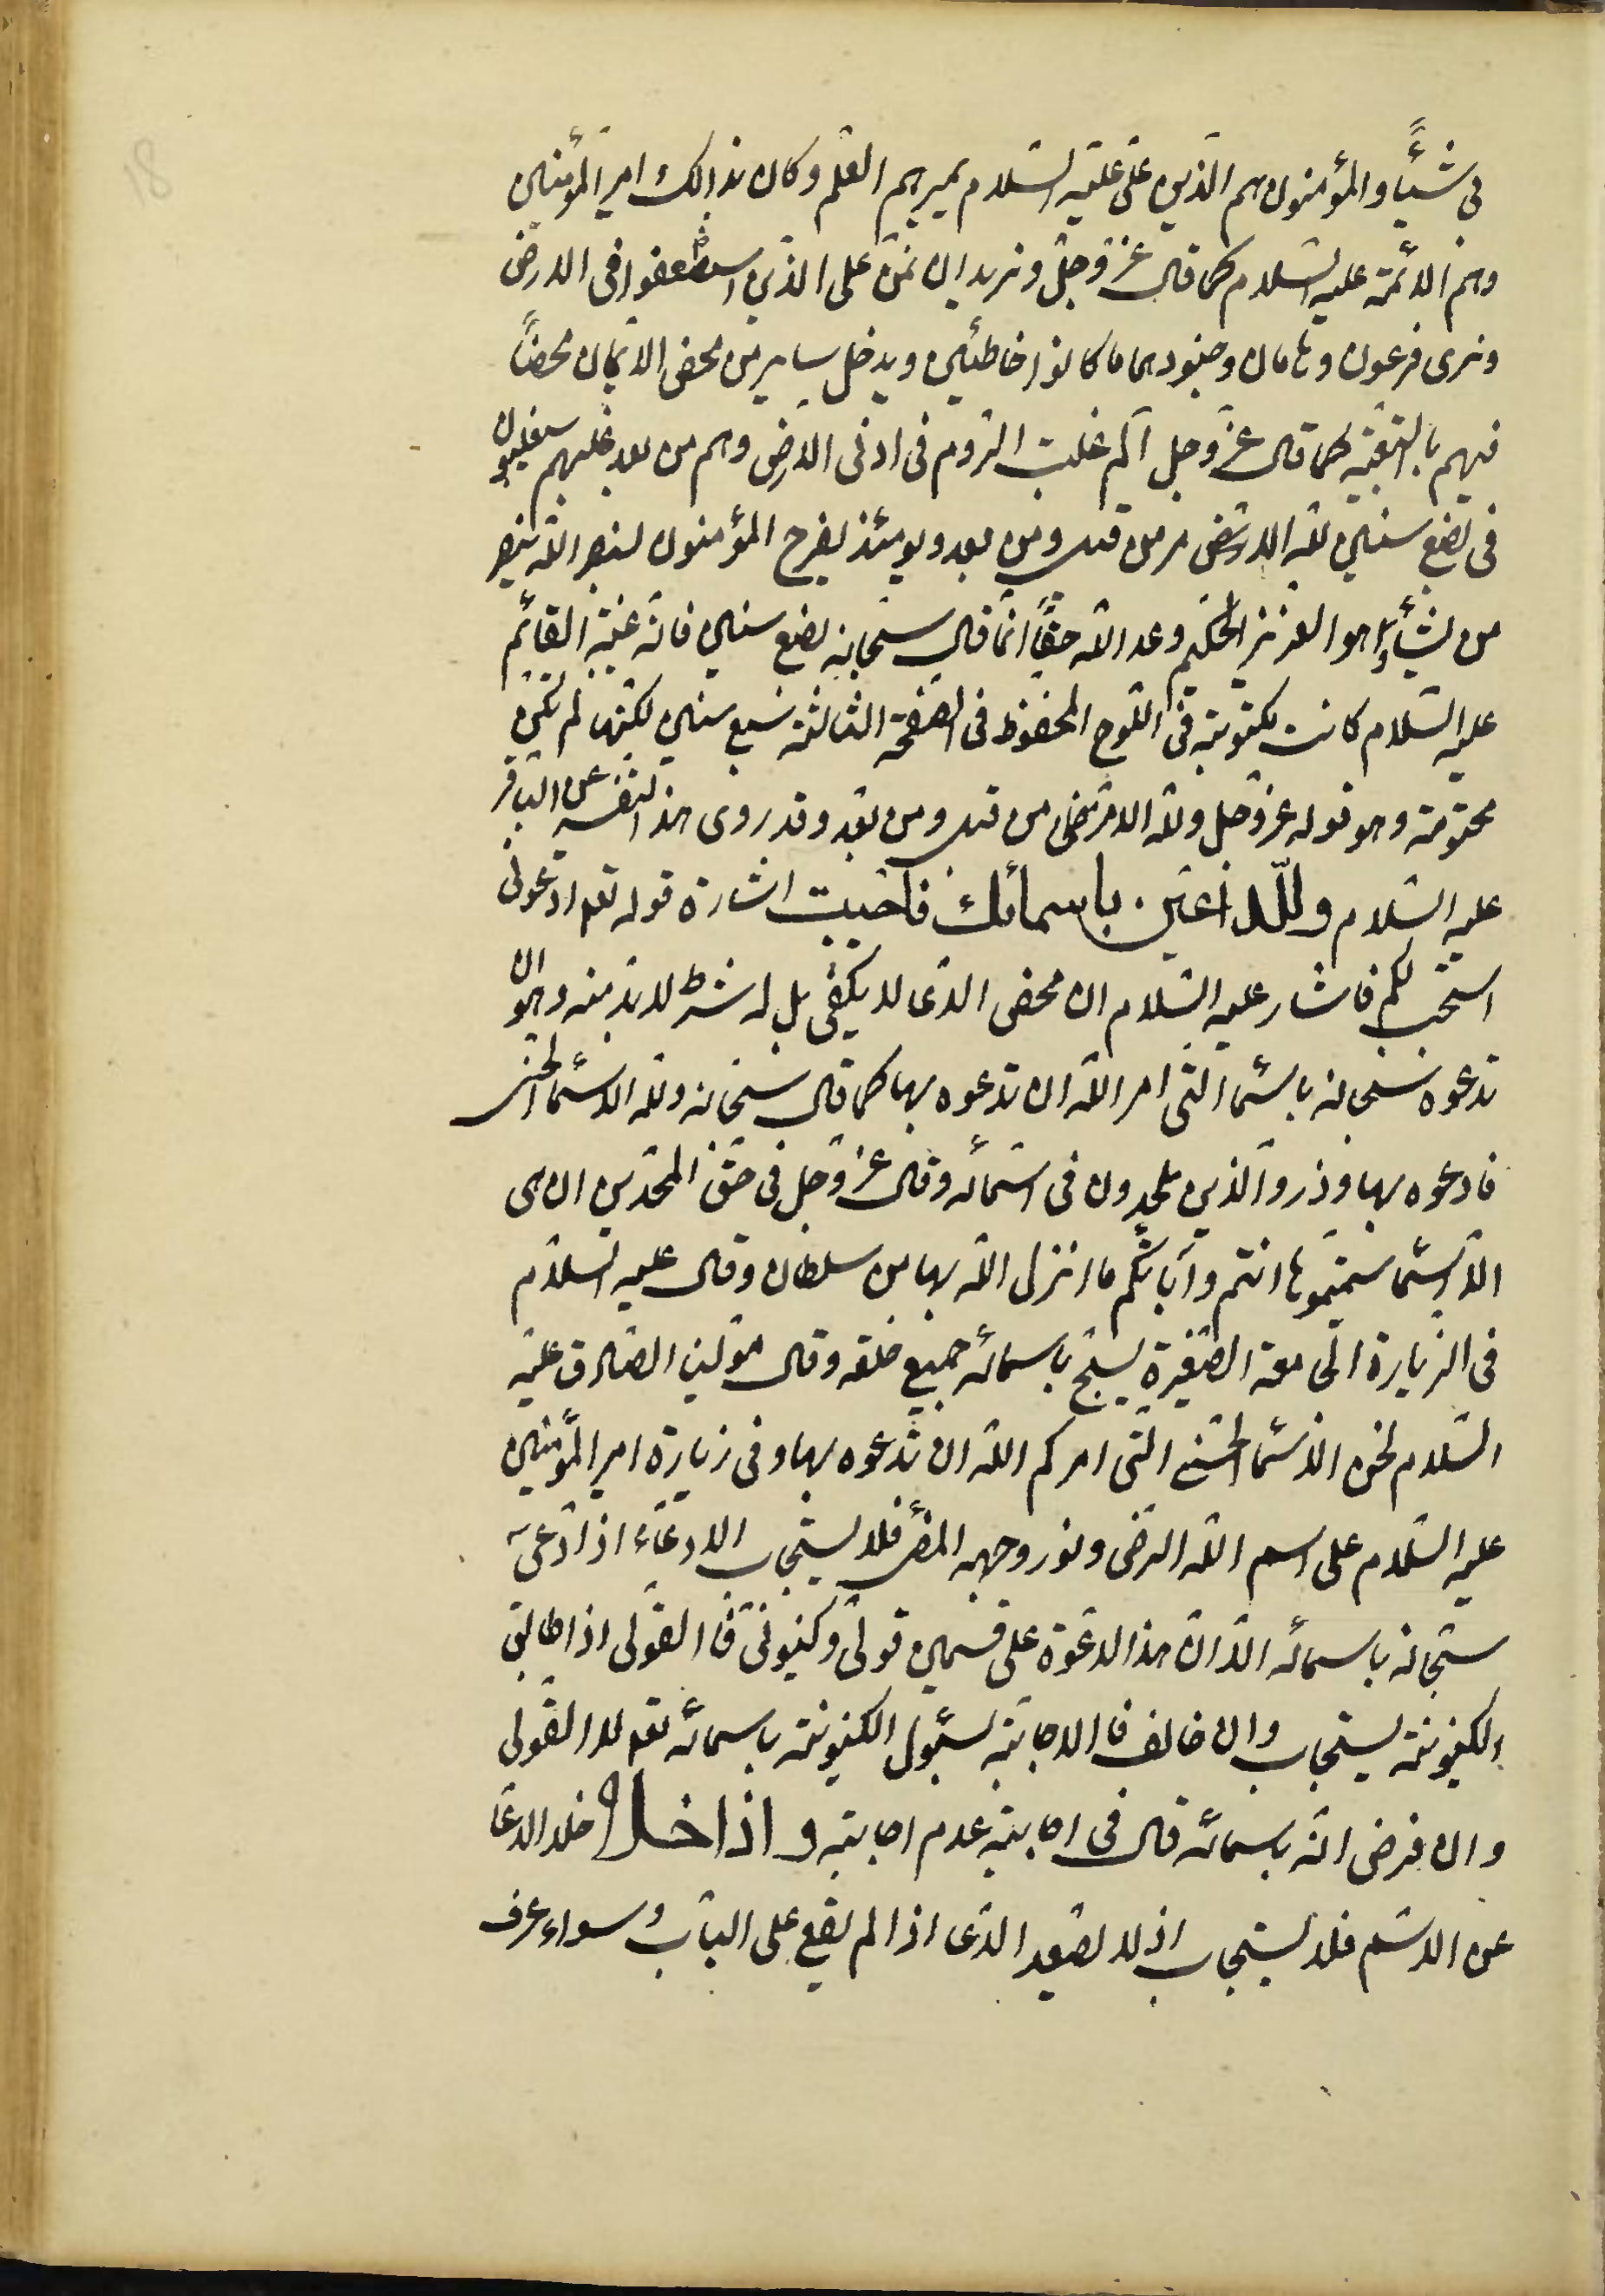 بى شيئاً والمؤمنون هم الذين على عليه السلام يميرهم العلم وكان بذالك امير المؤمنين
وهم الائمة عليه السلام كما قال عز وجل ونريد ان نمن على الذين استضعفوا فى الارض
ونرى فرعون وهامان وجنودهما ما كانوا خاطئين ويدخل ساير من محض الايمان محضاً
فيهم بالتبعية كما قال عز وجل الم غلبت الروم فى ادنى الارض وهم من بعد غلبهم سيغلبون
فى بضع سنين لله الامر من قبل ومن بعد ويومئذ يفرح المؤمنون بنصر الله ينصر
من يشآء وهو العزيز الحكيم وعد الله حقاً انما قال سبحانه بضع سنين فانه غيبة القائم
عليه السلام كانت مكتوبة فى اللوح المحفوظ فى الصفحة الثالثة سبع سنين لكنها لم تكن
محتومة وهو قوله عز وجل ولله الامر من قبل ومن بعد وقد روى هذا التفسير عن الباقر
عليه السلام وللداعين باسمائك فاجيبت اشارة قوله تعا ادعونى
استجب لكم فاشار عليه السلام ان محض الدعا لا يكفى بل له شرط لابد منه وهو ان
تدعوه سبحانه باسما التى امر الله ان تدعوه بها كما قال سبحانه ولله الاسما الحسنى
فادعوه بها وذروا الذين يلحدون فى اسمائه وقال عز وجل فى حق الملحدين ان هى
الا اسما سميتموها انتم وآبائكم ما انزل الله بها من سلطان وقال عليه السلام
فى الزيارة الجامعة الصغيرة يسبح باسمائه جميع خلقه وقال مولينا الصادق عليه
السلام نحن الاسما الحسنى التى امركم الله ان تدعوه بها وفى زيارة امير المؤمنين
عليه السلام على اسم الله الرضى ونور وجهه المضئ فلا يستجاب الا دعآء اذا دعى
سبحانه باسمائه الا ان هذا الدعوة على قسمين قولى وكينونى فا القولى اذا طابق
الكينونة يستجاب وان خالف فا الاجابة لسئول الكينونة باسمائه تعا لا القولى
وان فرض انه باسمائه قال فى اجابته عدم اجابته واذا خلا خلا الدعا
عن الاسم فلا يستجاب اذ لا يصعد الدعا اذا لم يقع على الباب وسواء عرف